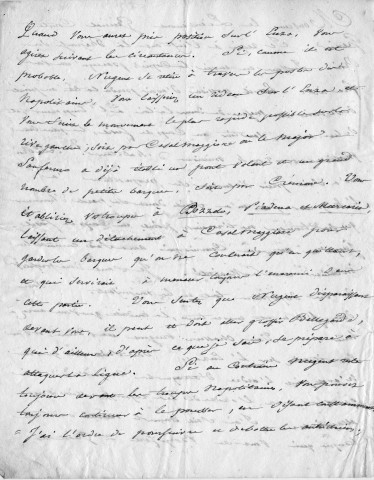 Quand vous aurez pris position sur l'Enza, vous
agirez suivant les circonstances. Si, comme il est
probable, Nugent se retire à travers les postes des
napolitains, vous laissez un rideau sur l'Enza et
vous faire le mouvement le plus rapide possible sur la
rive gauche, soit par Casal maggiore où le major
a déjà établi un pont volant et un grand
nombre de petites barques, soit par Cremone. Vous
établirez vos troupes à Bozzolo, Viadana et Marcaria
laissant un détachement à Casal Maggiore pour
garder les barques qu'on
et qui servirait à menacer toujours l'ennemi dans
cette partie. Vous sentez que Nugent disparaissant
devant vous, il peut et doit aller grossir Bellegarde
qui d'ailleurs, d'après ce que je sais, se prépare à
attaquer la ligne. Si au contraire Nugent reste
toujours devant les troupes napolitaines, vous pouvez
toujours continuer à le pousser, en disant
= J'ai l'ordre de poursuivre et de battre les autrichiens;